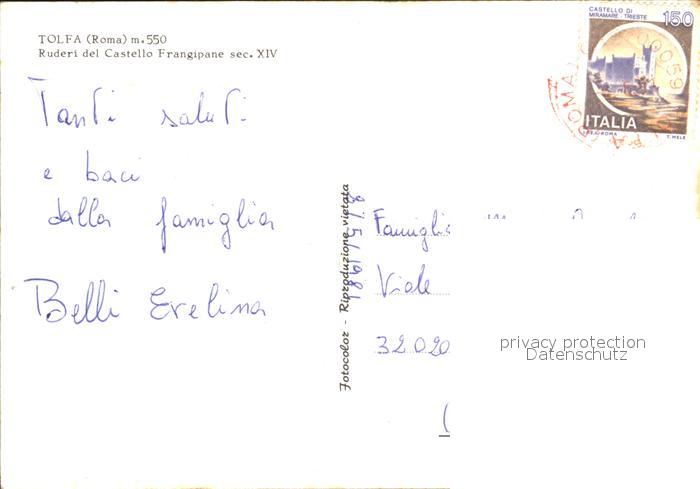 TOLFA (Roma) m. 550
Ruderi del Castello Frangipane sec. XIV
Tanti saluti
e baci
dalla famiglia
Belli Evelina
Fotocolor - Riproduzione vietata
8/5/1981
CASTELLO DI
MIRAMARE TRIESTE
150
ITALIA
I.P.Z.S. ROMA
T. MELE
00059
ROMA
Famiglia
Viale
32020
(
privacy protection
Datenschutz